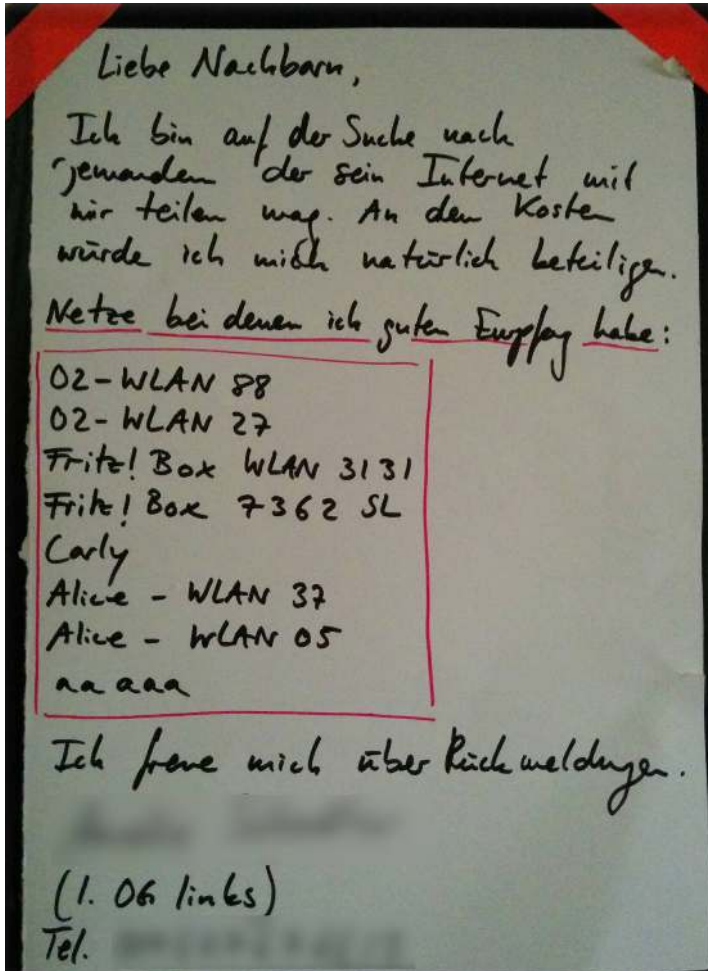 Liebe Nachbarn,
Ich bin auf der Suche nach
jemandem der sein Internet mit
mir teilen mag. An den Kosten
würde ich mich natürlich beteiligen.
Netze bei denen ich guten Empfang habe:
O2-WLAN 88
O2-WLAN 27
Fritz! Box WLAN 3131
Fritz! Box 7362 SL
Carly
Alice - WLAN 37
Alice - WLAN 05
aa aaa
Ich freue mich über Rückmeldungen.
(1. OG links)
Tel.